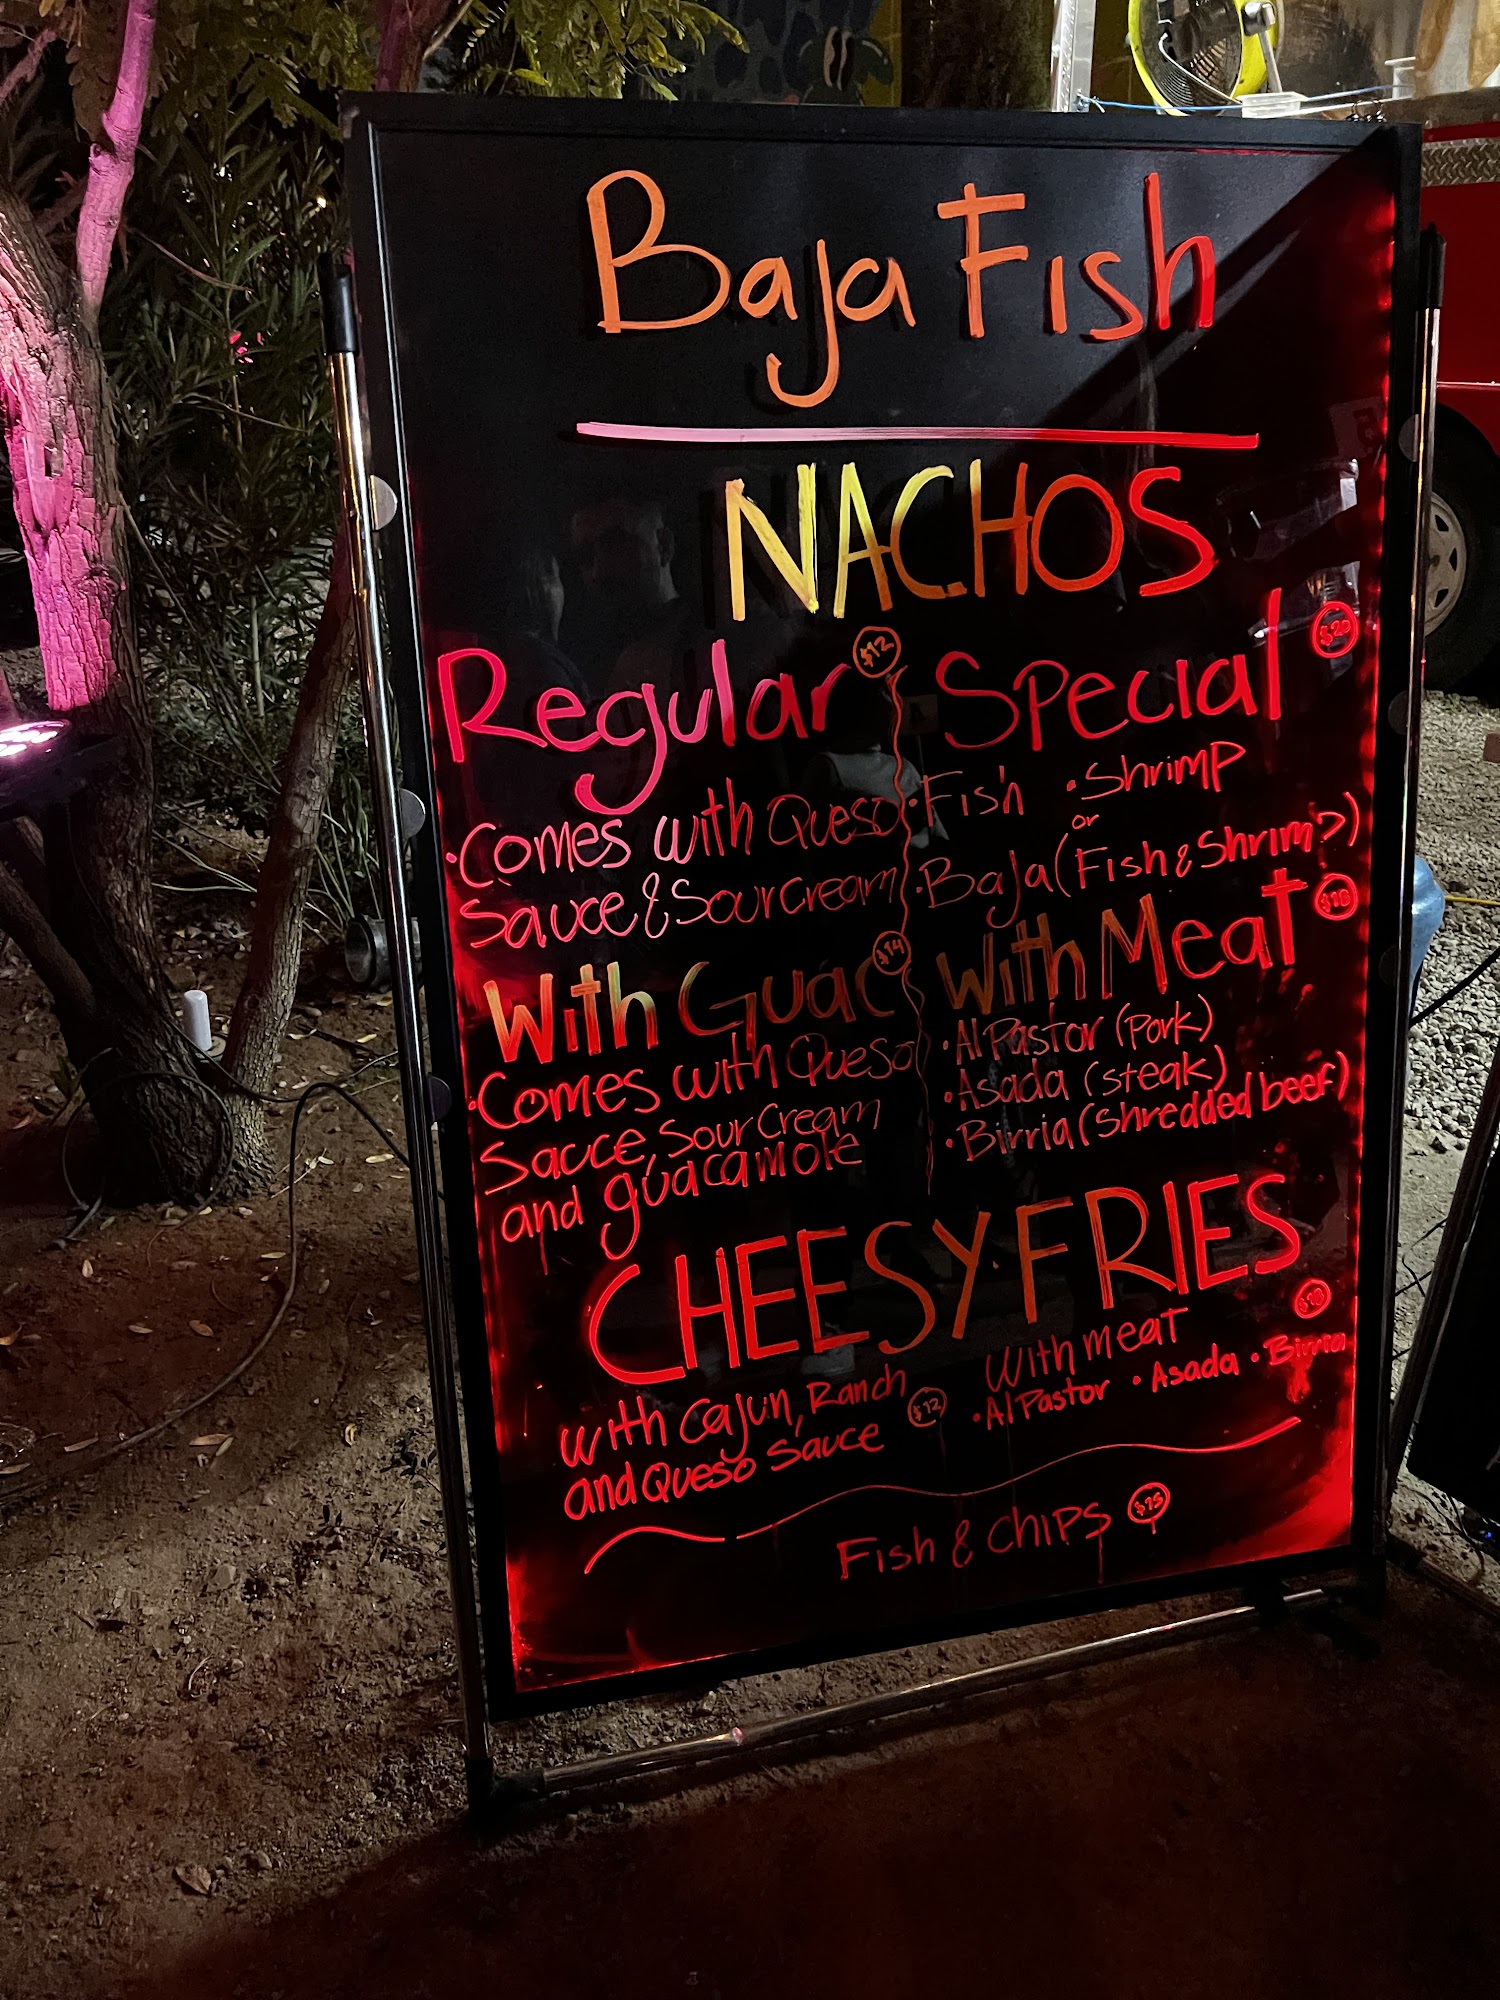 Baja Fish
NACHOS
Regular $12
Comes with Queso
Sauce & Sour cream
With Guac $14
Comes with Queso
Sauce, Sour Cream
and guacamole
Special $20
Fish · Shrimp
or
Baja (Fish & Shrimp)
With Meat $18
Al Pastor (pork)
Asada (steak)
Birria (shredded beef)
CHEESY FRIES
with cajun, Ranch
and Queso Sauce $12
With meat
Al Pastor · Asada · Birria
Fish & Chips $15